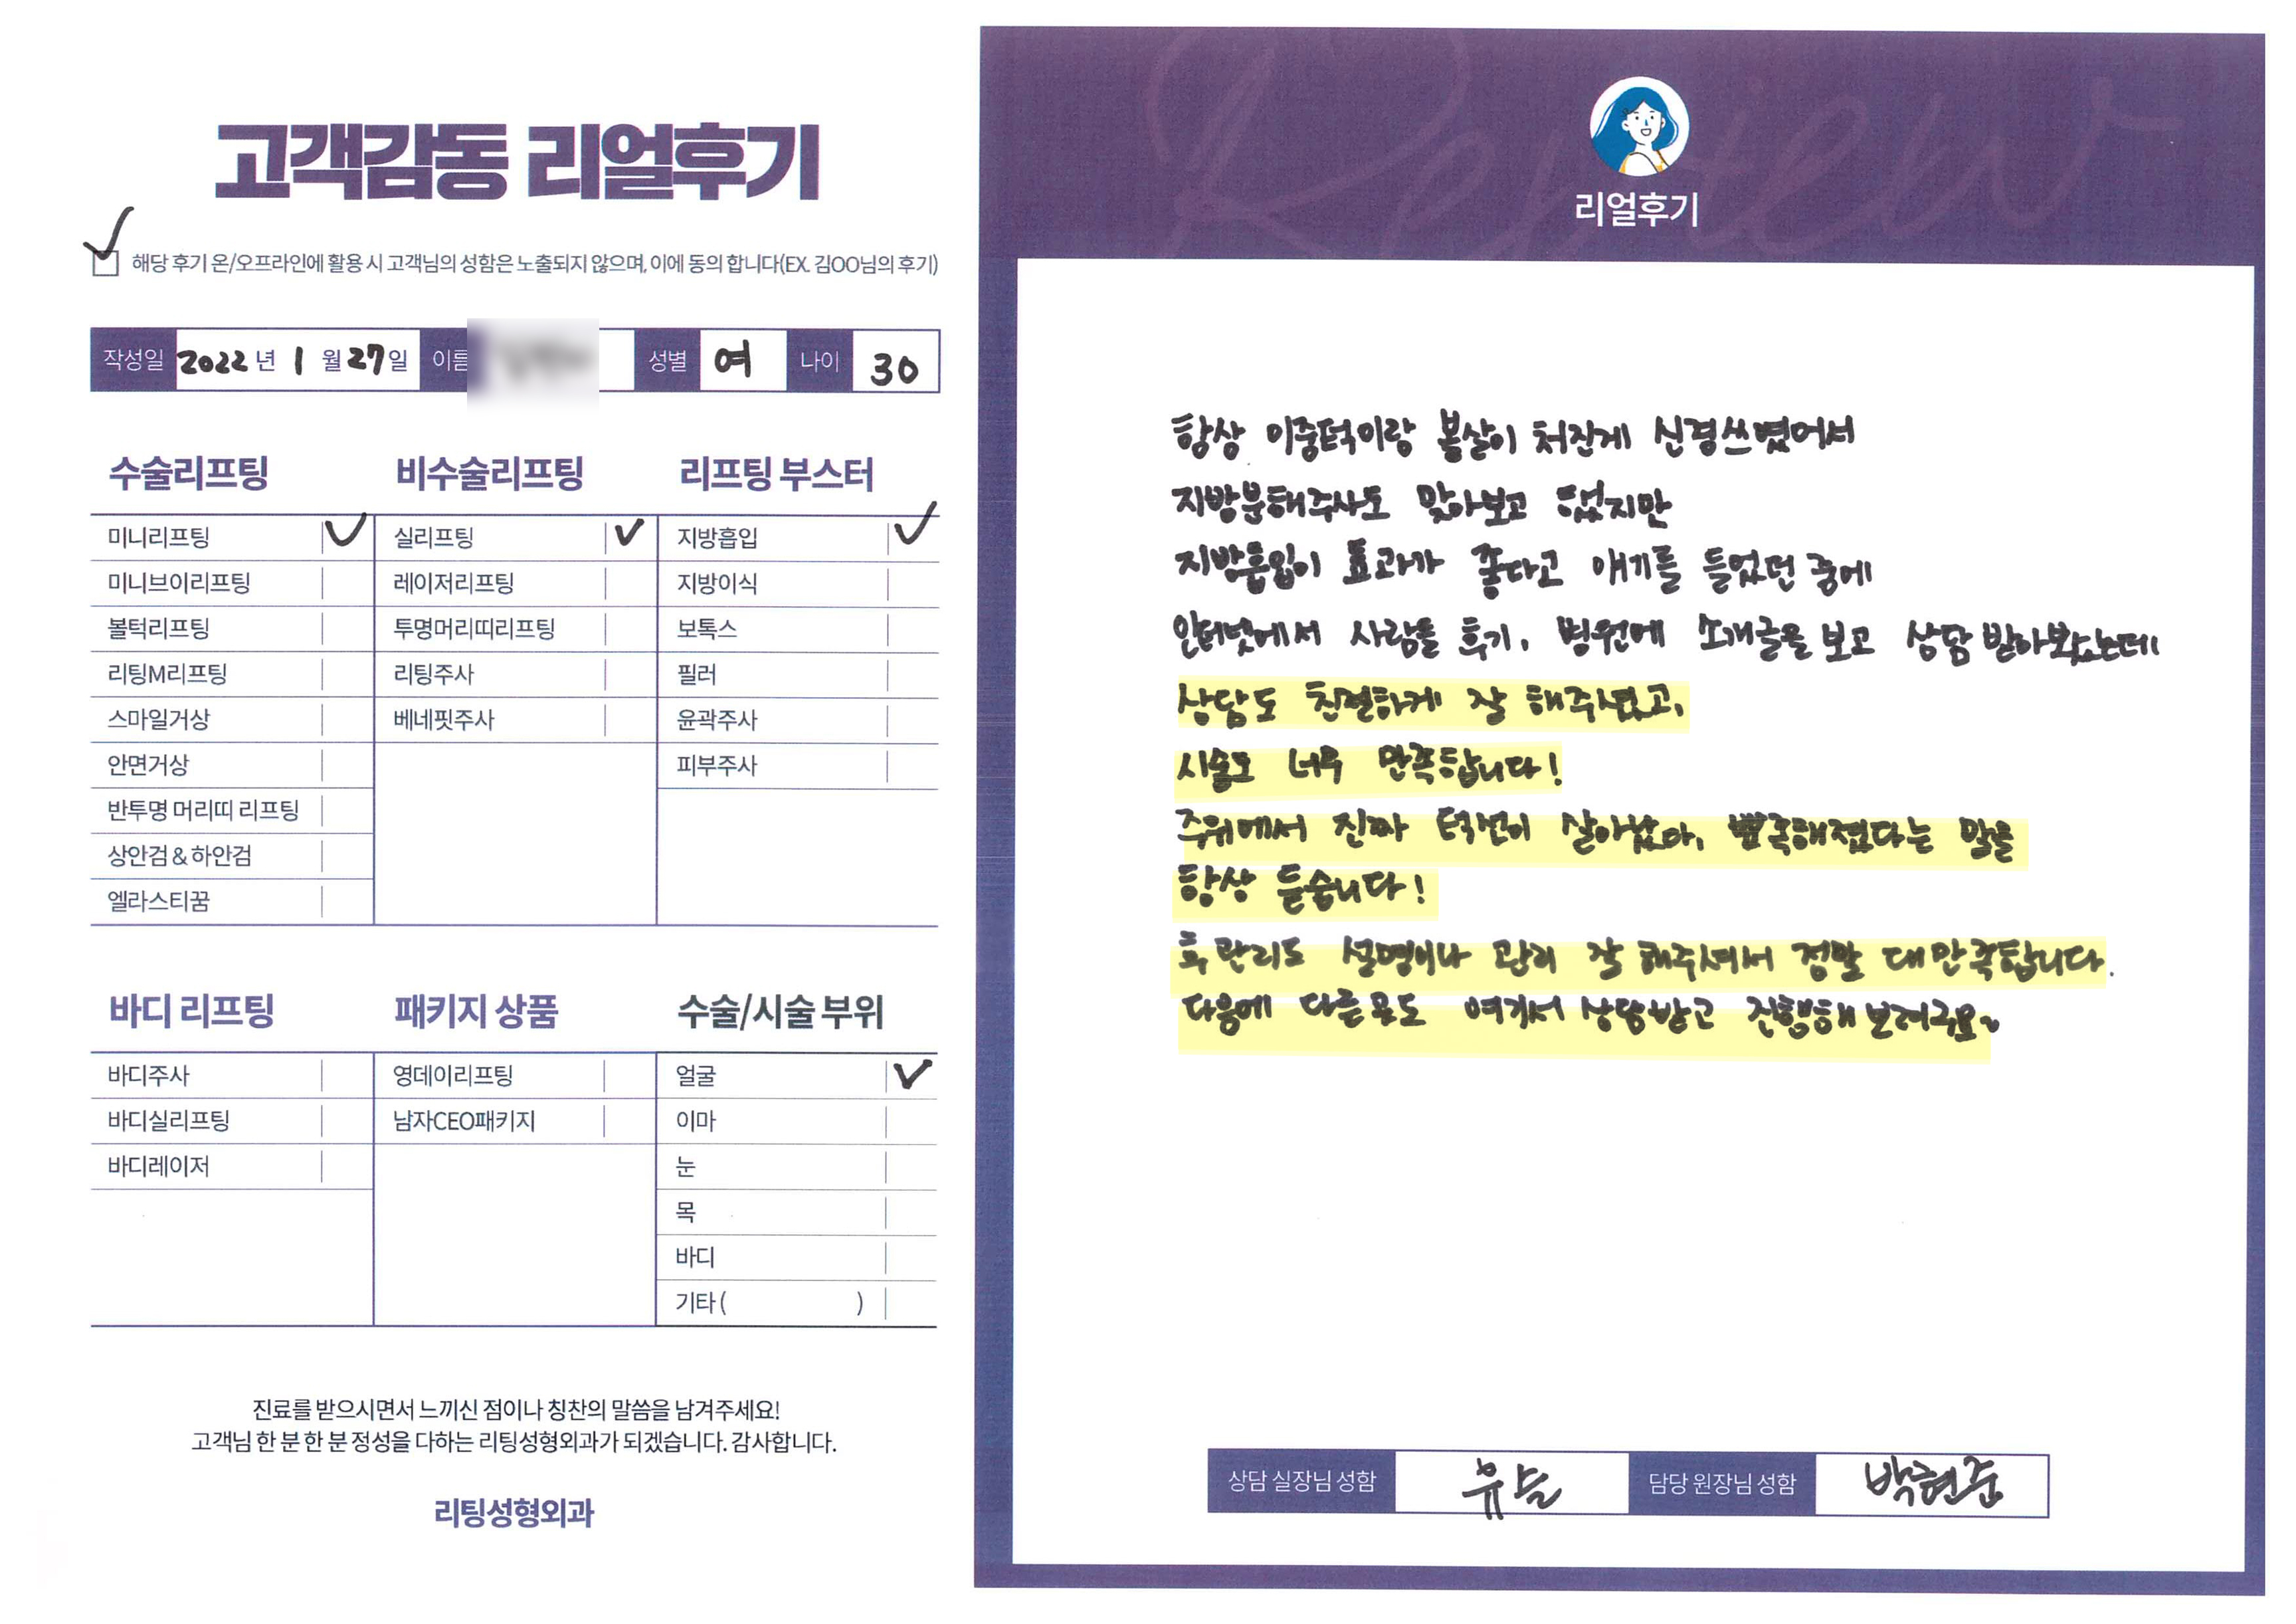 고객감동 리얼후기
해당 후기 온/오프라인에 활용 시 고객님의 성함은 노출되지 않으며, 이에 동의 합니다(EX. 김OO님의 후기)
작성일 2022년 1월 27일 이름 성별 여 나이 30
수술리프팅
미니리프팅
미니브이리프팅
볼턱리프팅
리팅M리프팅
스마일거상
안면거상
반투명 머리띠 리프팅
상안검 & 하안검
엘라스티꿈
비수술리프팅
실리프팅
레이저리프팅
투명머리띠리프팅
리팅주사
베네핏주사
리프팅 부스터
지방흡입
지방이식
보톡스
필러
윤곽주사
피부주사
바디 리프팅
바디주사
바디실리프팅
바디레이저
패키지 상품
영데이리프팅
남자CEO패키지
수술/시술 부위
얼굴
이마
눈
목
바디
기타 ( )
진료를 받으시면서 느끼신 점이나 칭찬의 말씀을 남겨주세요!
고객님 한 분 한 분 정성을 다하는 리팅성형외과가 되겠습니다. 감사합니다.
리팅성형외과
Review
리얼후기
항상 이중턱이랑 볼살이 처진게 신경쓰였어서
지방분해주사도 맞아보고 했었지만
지방흡입이 효과가 좋다고 얘기를 들었던 중에
인터넷에서 사람들 후기, 병원에 소개글을 보고 상담 받아봤는데
상담도 친절하게 잘 해주셨고,
시술도 너무 만족합니다!
주위에서 진짜 턱선이 살아났다, 뾰족해졌다는 말을
항상 듣습니다!
후 관리도 설명이나 관리 잘 해주셔서 정말 대만족합니다.
다음에 다른곳도 여기서 상담받고 진행해 보려구요~
상담 실장님 성함 담당 원장님 성함 박현준